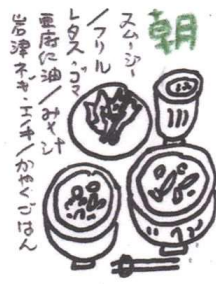 朝
スムージー
／フリル
レタス・ゴマ
亜麻仁油／みそ汁
岩津ネギ・エノキ／かやくごはん